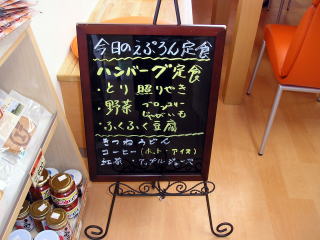 今日のえぷろん定食
ハンバーグ定食
・とり照りやき
・野菜 ブロッコリー
じゃがいも
・ふくふく豆腐
きつねうどん
コーヒー(ホット・アイス)
紅茶・アップルジュース